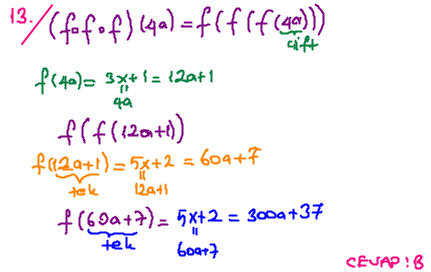 13. (fofof)(4a) = f(f(f(4a)))
çift
f(4a) = 3x+1 = 12a+1
4a
f(f(12a+1))
f(12a+1) = 5x+2 = 60a+7
tek 12a+1
f(60a+7) = 5x+2 = 300a+37
tek 60a+7
CEVAP: B